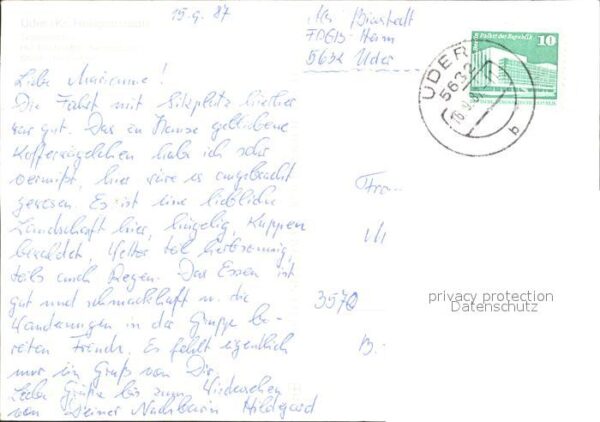 15.9.87
Bierstedt
FDGB-Heim
5632 Uder
Palast der Republik
10
DDR
UDER
5632
b
Liebe Marianne!
Die Fahrt mit Sitzplatz hierher
war gut. Das zu Hause gebliebene
Kofferwägelchen hab ich sehr
vermißt, hier wäre es angebracht
gewesen. Es ist eine liebliche
Landschaft hier, hügelig, Kuppen
bewaldet, Wetter teils herbsonnig,
teils auch Regen. Das Essen ist
gut und schmackhaft u. die
Wanderungen in der Gruppe be-
reiten Freude. Es fehlt eigentlich
nur ein Gruß von Dir.
Liebe Grüße bis zum Wiedersehen
von Deiner Nachbarin Hildegard
Frau
M
3570
B.
privacy protection
Datenschutz